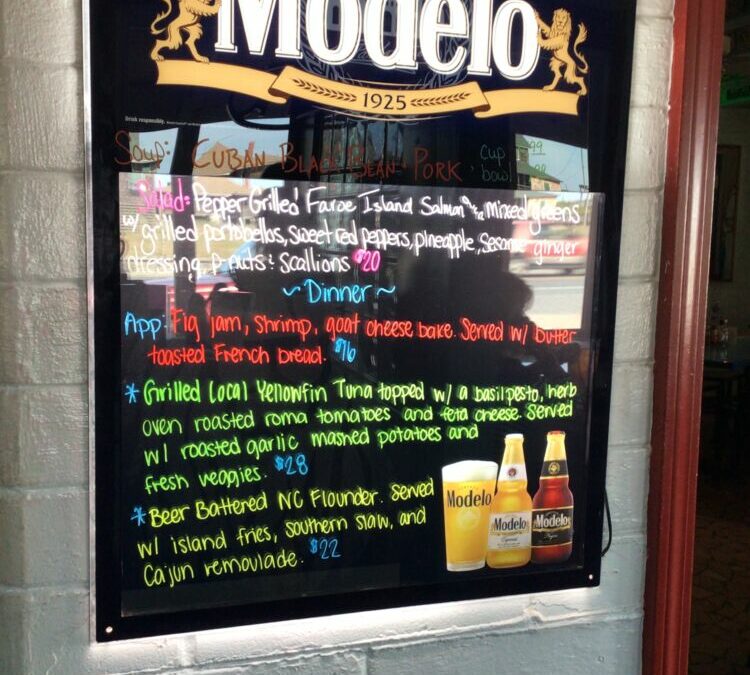 Modelo
1925
Drink responsibly.
Soup: CUBAN Black Bean Pork cup
bowl
Salad: Pepper Grilled Faroe Island Salmon mixed greens
w/ grilled portobellos, sweet red peppers, pineapple, sesame ginger
dressing, p-nuts & scallions $20
~Dinner~
App: Fig jam, shrimp, goat cheese bake. Served w/ butter
toasted French bread. $16
* Grilled Local Yellowfin Tuna topped w/ a basil pesto, herb
oven roasted roma tomatoes and feta cheese. Served
w/ roasted garlic mashed potatoes and
fresh veggies. $28
* Beer Battered NC Flounder. Served
w/ island fries, southern slaw, and
Cajun remoulade. $22
Modelo
Modelo
Modelo